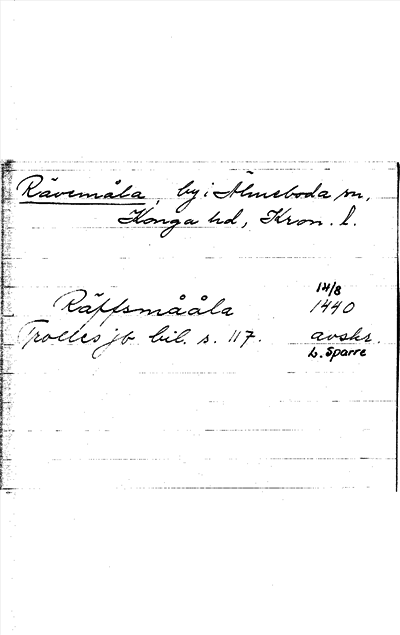 Rävemåla, by i Älmeboda sn,
Konga hd, Kron. l.
14/8
Räffsmååla 1440
Trolles jb bil. s. 117. avskr.
L. Sparre